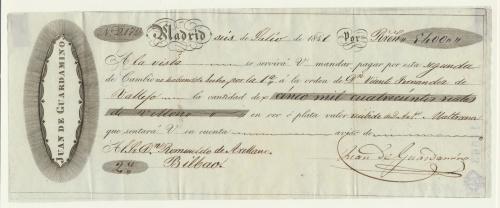 No 2172 Madrid seis de Julio de 1841 Por Rvon 5400
A la vista se servirá V. mandar pagar por esta segunda
de Cambio no habiendolo hecho por la 1ª á la orden de Dn Vicente Fernandez de
Vallejo la cantidad de cinco mil cuatrocientos reales
de vellon en oro ó plata valor recibido de
que sentará V. en cuenta aviso de
A Dn Romualdo de Arellano
Bilbao
Juan de Guardamino
JUAN DE GUARDAMINO